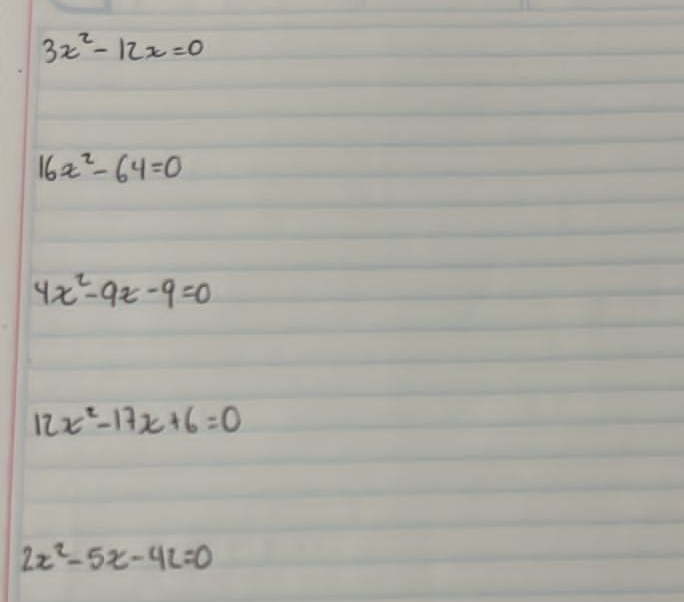 3x² - 12x = 0
16x² - 64 = 0
4x² - 9x - 9 = 0
12x² - 17x + 6 = 0
2x² - 5x - 42 = 0